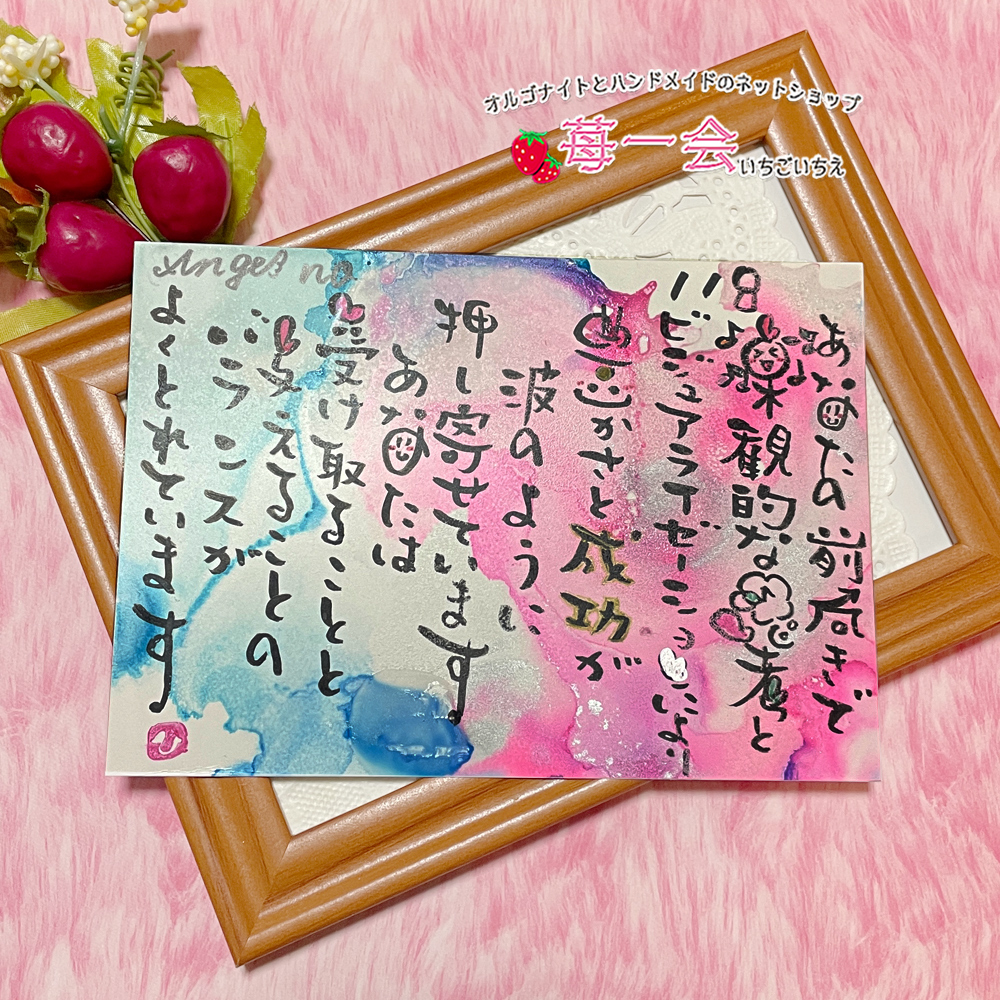 オルゴナイトとハンドメイドのネットショップ
苺一会
いちごいちえ
Angel no
118
あなたの前向きで
楽観的な思考と
ビジュアライゼーションにより
豊かさと成功が
波のように
押し寄せています
あなたは
受け取ることと
与えることの
バランスが
よくとれています